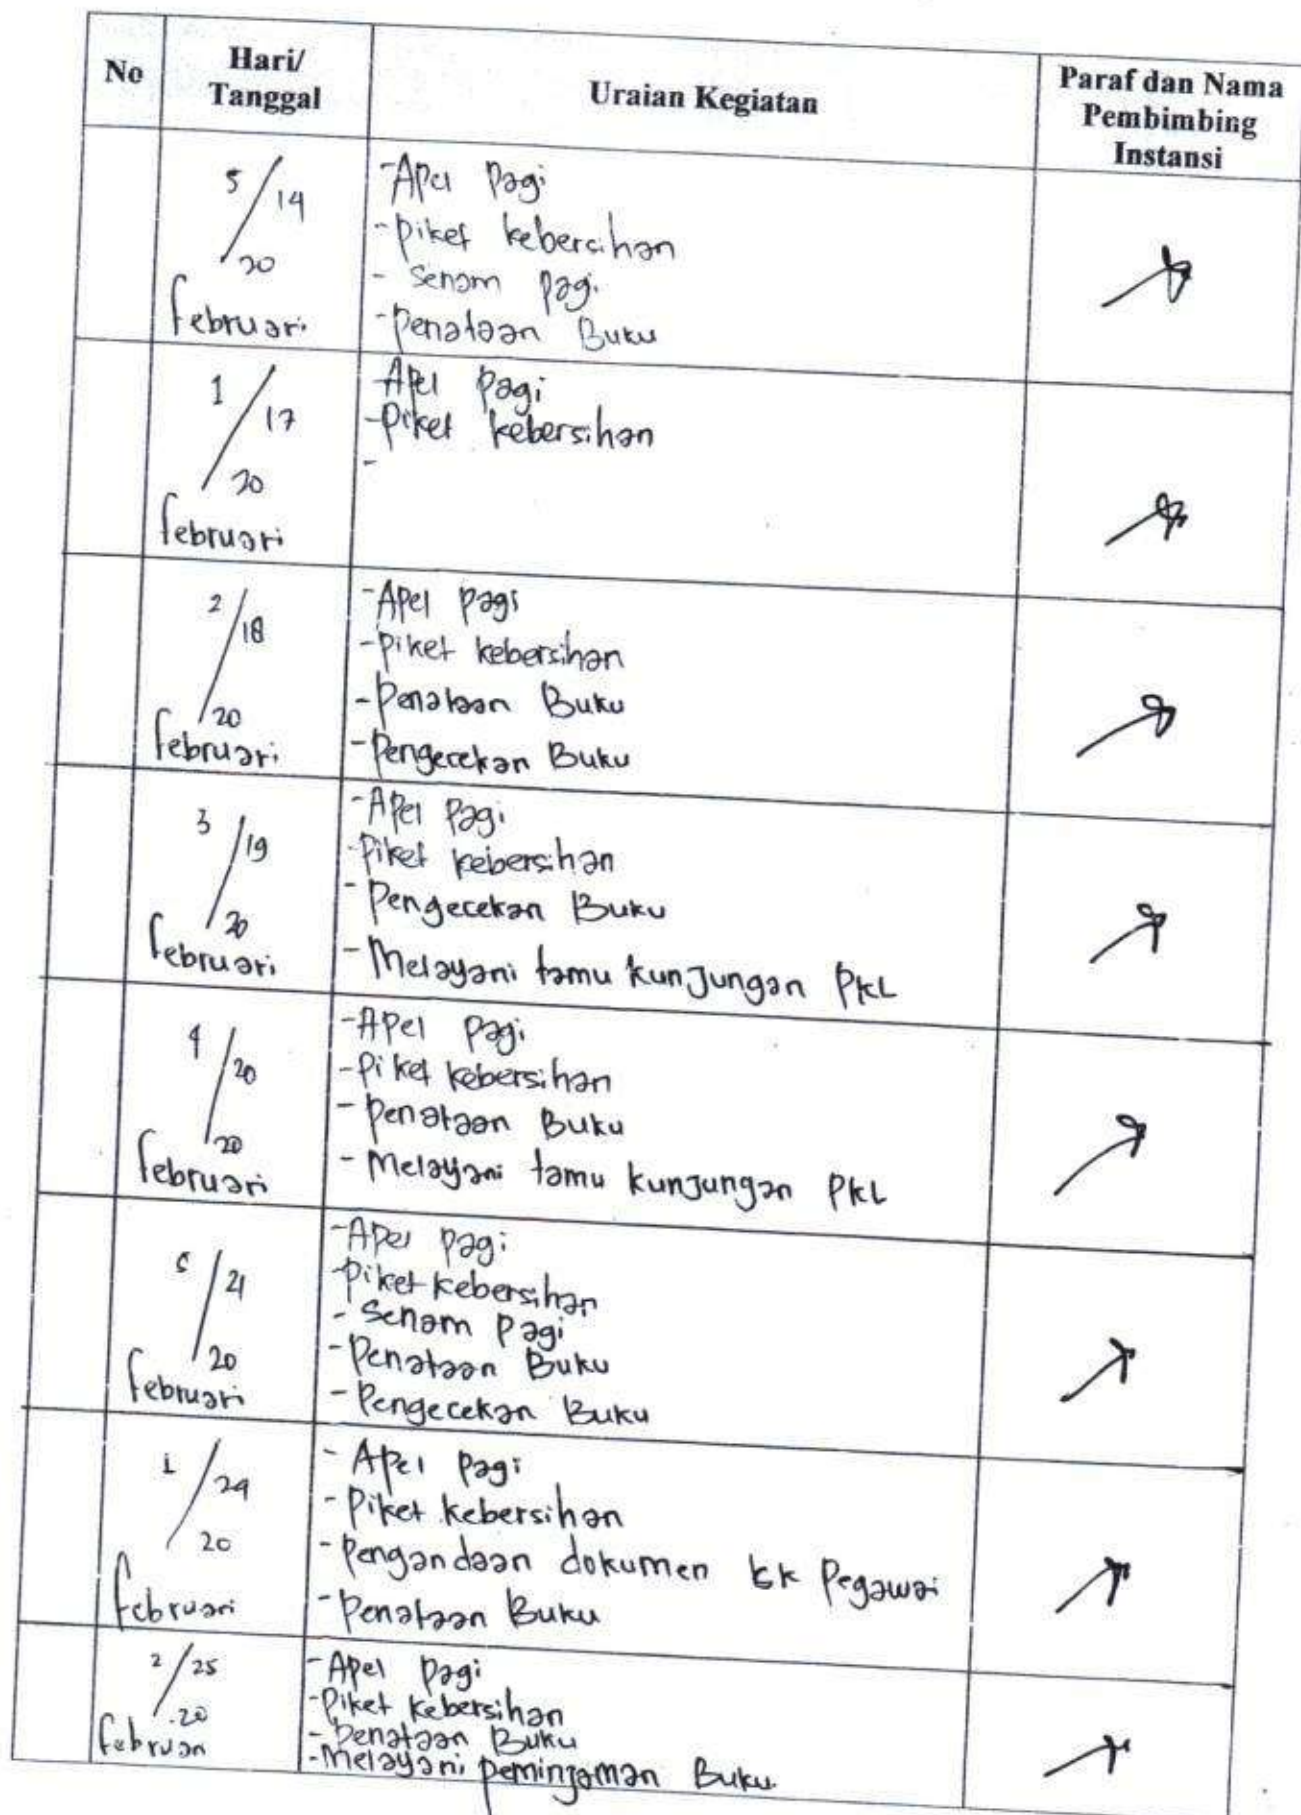 No
Hari/
Tanggal
Uraian Kegiatan
Paraf dan Nama
Pembimbing
Instansi
5/14
20
Februari
-Apel Pagi
-piket kebersihan
- Senam pagi
-penataan Buku
1/17
20
februari
Apel pagi
-Piket kebersihan
-
2/18
20
februari
-Apel pagi
-piket kebersihan
-Penataan Buku
-Pengecekan Buku
3/19
20
februari
-Apel Pagi
-Piket kebersihan
-Pengecekan Buku
-Melayani tamu kunJungan PKL
4/20
20
februari
-Apel pagi
-Piket kebersihan
-penataan Buku
-Melayani tamu kunJungan PKL
5/21
20
februari
-Apel pagi
-Piket kebersihan
- Senam pagi
-Penataan Buku
-Pengecekan Buku
1/24
20
februari
- Apel pagi
- Piket kebersihan
-pengandaan dokumen SK Pegawai
-penataan Buku
2/25
20
februari
-Apel pagi
-Piket kebersihan
-penataan Buku
-Melayani peminjaman Buku.